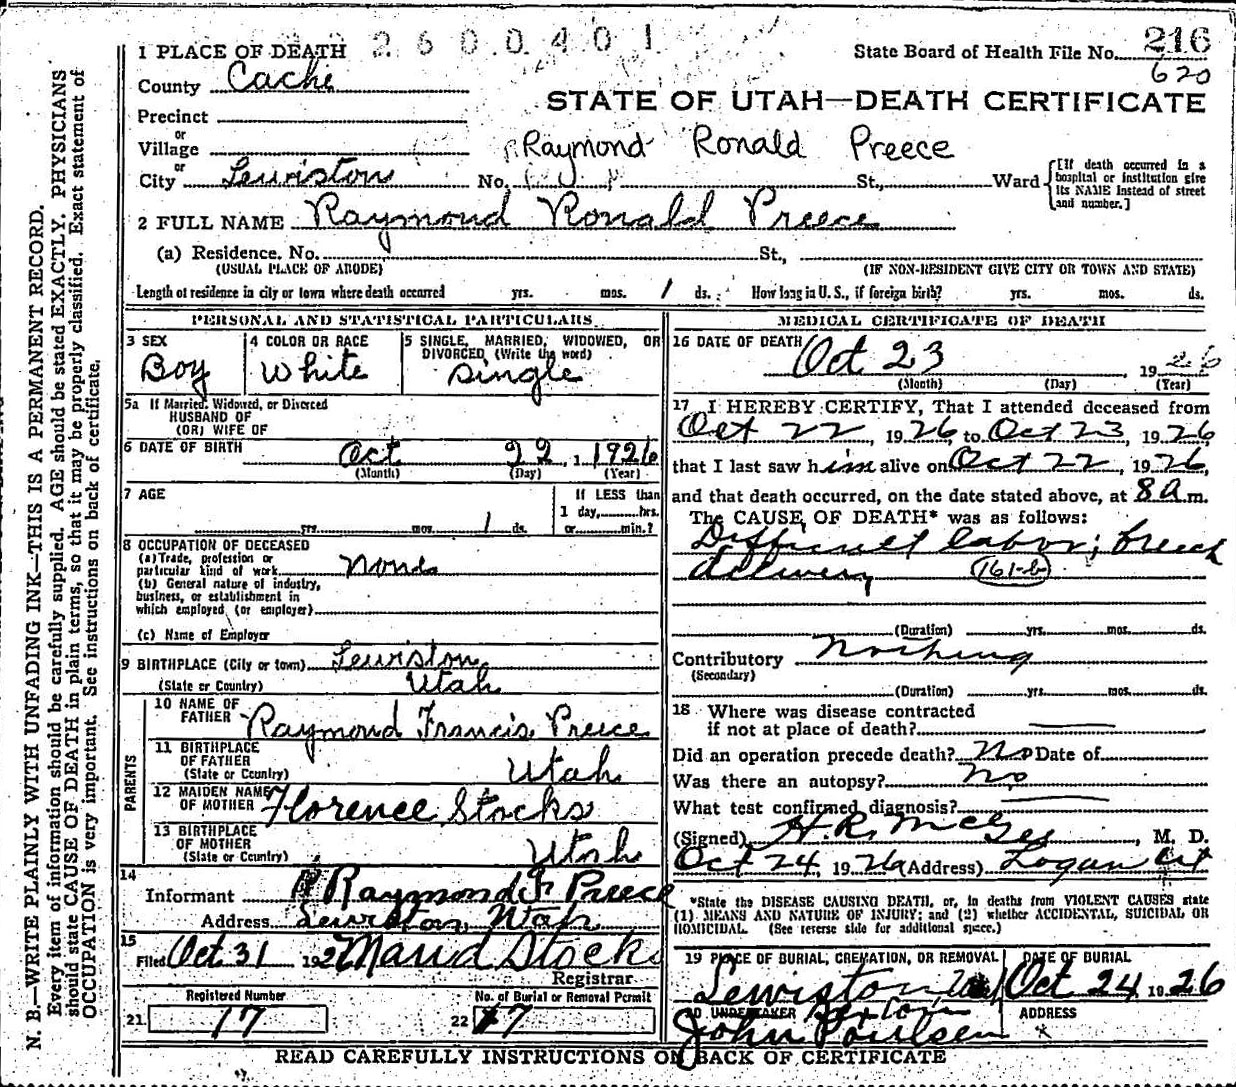 2600401
1 PLACE OF DEATH
State Board of Health File No. 216
County Cache
620
STATE OF UTAH—DEATH CERTIFICATE
Precinct
or
Village
Raymond Ronald Preece
or
City Lewiston No. St., Ward
[If death occurred in a hospital or institution give its NAME instead of street and number.]
2 FULL NAME Raymond Ronald Preece
(a) Residence. No. St.,
(USUAL PLACE OF ABODE) (IF NON-RESIDENT GIVE CITY OR TOWN AND STATE)
Length of residence in city or town where death occurred yrs. mos. 1 ds. How long in U. S., if foreign birth? yrs. mos. ds.
PERSONAL AND STATISTICAL PARTICULARS
3 SEX Boy
4 COLOR OR RACE White
5 SINGLE, MARRIED, WIDOWED, OR DIVORCED (Write the word) Single
5a If Married, Widowed, or Divorced
HUSBAND OF
(OR) WIFE OF
6 DATE OF BIRTH Oct 22, 1926
(Month) (Day) (Year)
7 AGE
yrs. mos. 1 ds.
If LESS than
1 day, hrs.
or min.?
8 OCCUPATION OF DECEASED
(a) Trade, profession or
particular kind of work None
(b) General nature of industry,
business, or establishment in
which employed (or employer)
(c) Name of Employer
9 BIRTHPLACE (City or town) Lewiston,
(State or Country) Utah
PARENTS
10 NAME OF FATHER Raymond Francis Preece
11 BIRTHPLACE OF FATHER
(State or Country) Utah
12 MAIDEN NAME OF MOTHER Florence Stocks
13 BIRTHPLACE OF MOTHER
(State or Country) Utah
14
Informant Raymond F. Preece
Address Lewiston, Utah
15
Filed Oct 31 192 Maud Stocks
Registrar
Registered Number
21 17
No. of Burial or Removal Permit
22 7
MEDICAL CERTIFICATE OF DEATH
16 DATE OF DEATH Oct 23, 1926
(Month) (Day) (Year)
17 I HEREBY CERTIFY, That I attended deceased from
Oct 22, 1926 to Oct 23, 1926,
that I last saw him alive on Oct 22, 1926,
and that death occurred, on the date stated above, at 8 a m.
The CAUSE OF DEATH* was as follows:
Difficult labor; breech
delivery 161-b
(Duration) yrs. mos. ds.
Contributory Nothing
(Secondary)
(Duration) yrs. mos. ds.
18 Where was disease contracted
if not at place of death?
Did an operation precede death? No Date of
Was there an autopsy? No
What test confirmed diagnosis?
(Signed) H. R. McGee, M. D.
Oct 24, 1926 (Address) Logan
*State the DISEASE CAUSING DEATH, or, in deaths from VIOLENT CAUSES state
(1) MEANS AND NATURE OF INJURY; and (2) whether ACCIDENTAL, SUICIDAL OR
HOMICIDAL. (See reverse side for additional space.)
19 PLACE OF BURIAL, CREMATION, OR REMOVAL
Lewiston,
DATE OF BURIAL
Oct 24 1926
20 UNDERTAKER
John Poulsen
ADDRESS
READ CAREFULLY INSTRUCTIONS ON BACK OF CERTIFICATE
N. B.—WRITE PLAINLY WITH UNFADING INK—THIS IS A PERMANENT RECORD.
Every item of information should be carefully supplied. AGE should be stated EXACTLY. PHYSICIANS
should state CAUSE OF DEATH in plain terms, so that it may be properly classified. Exact statement of
OCCUPATION is very important. See instructions on back of certificate.